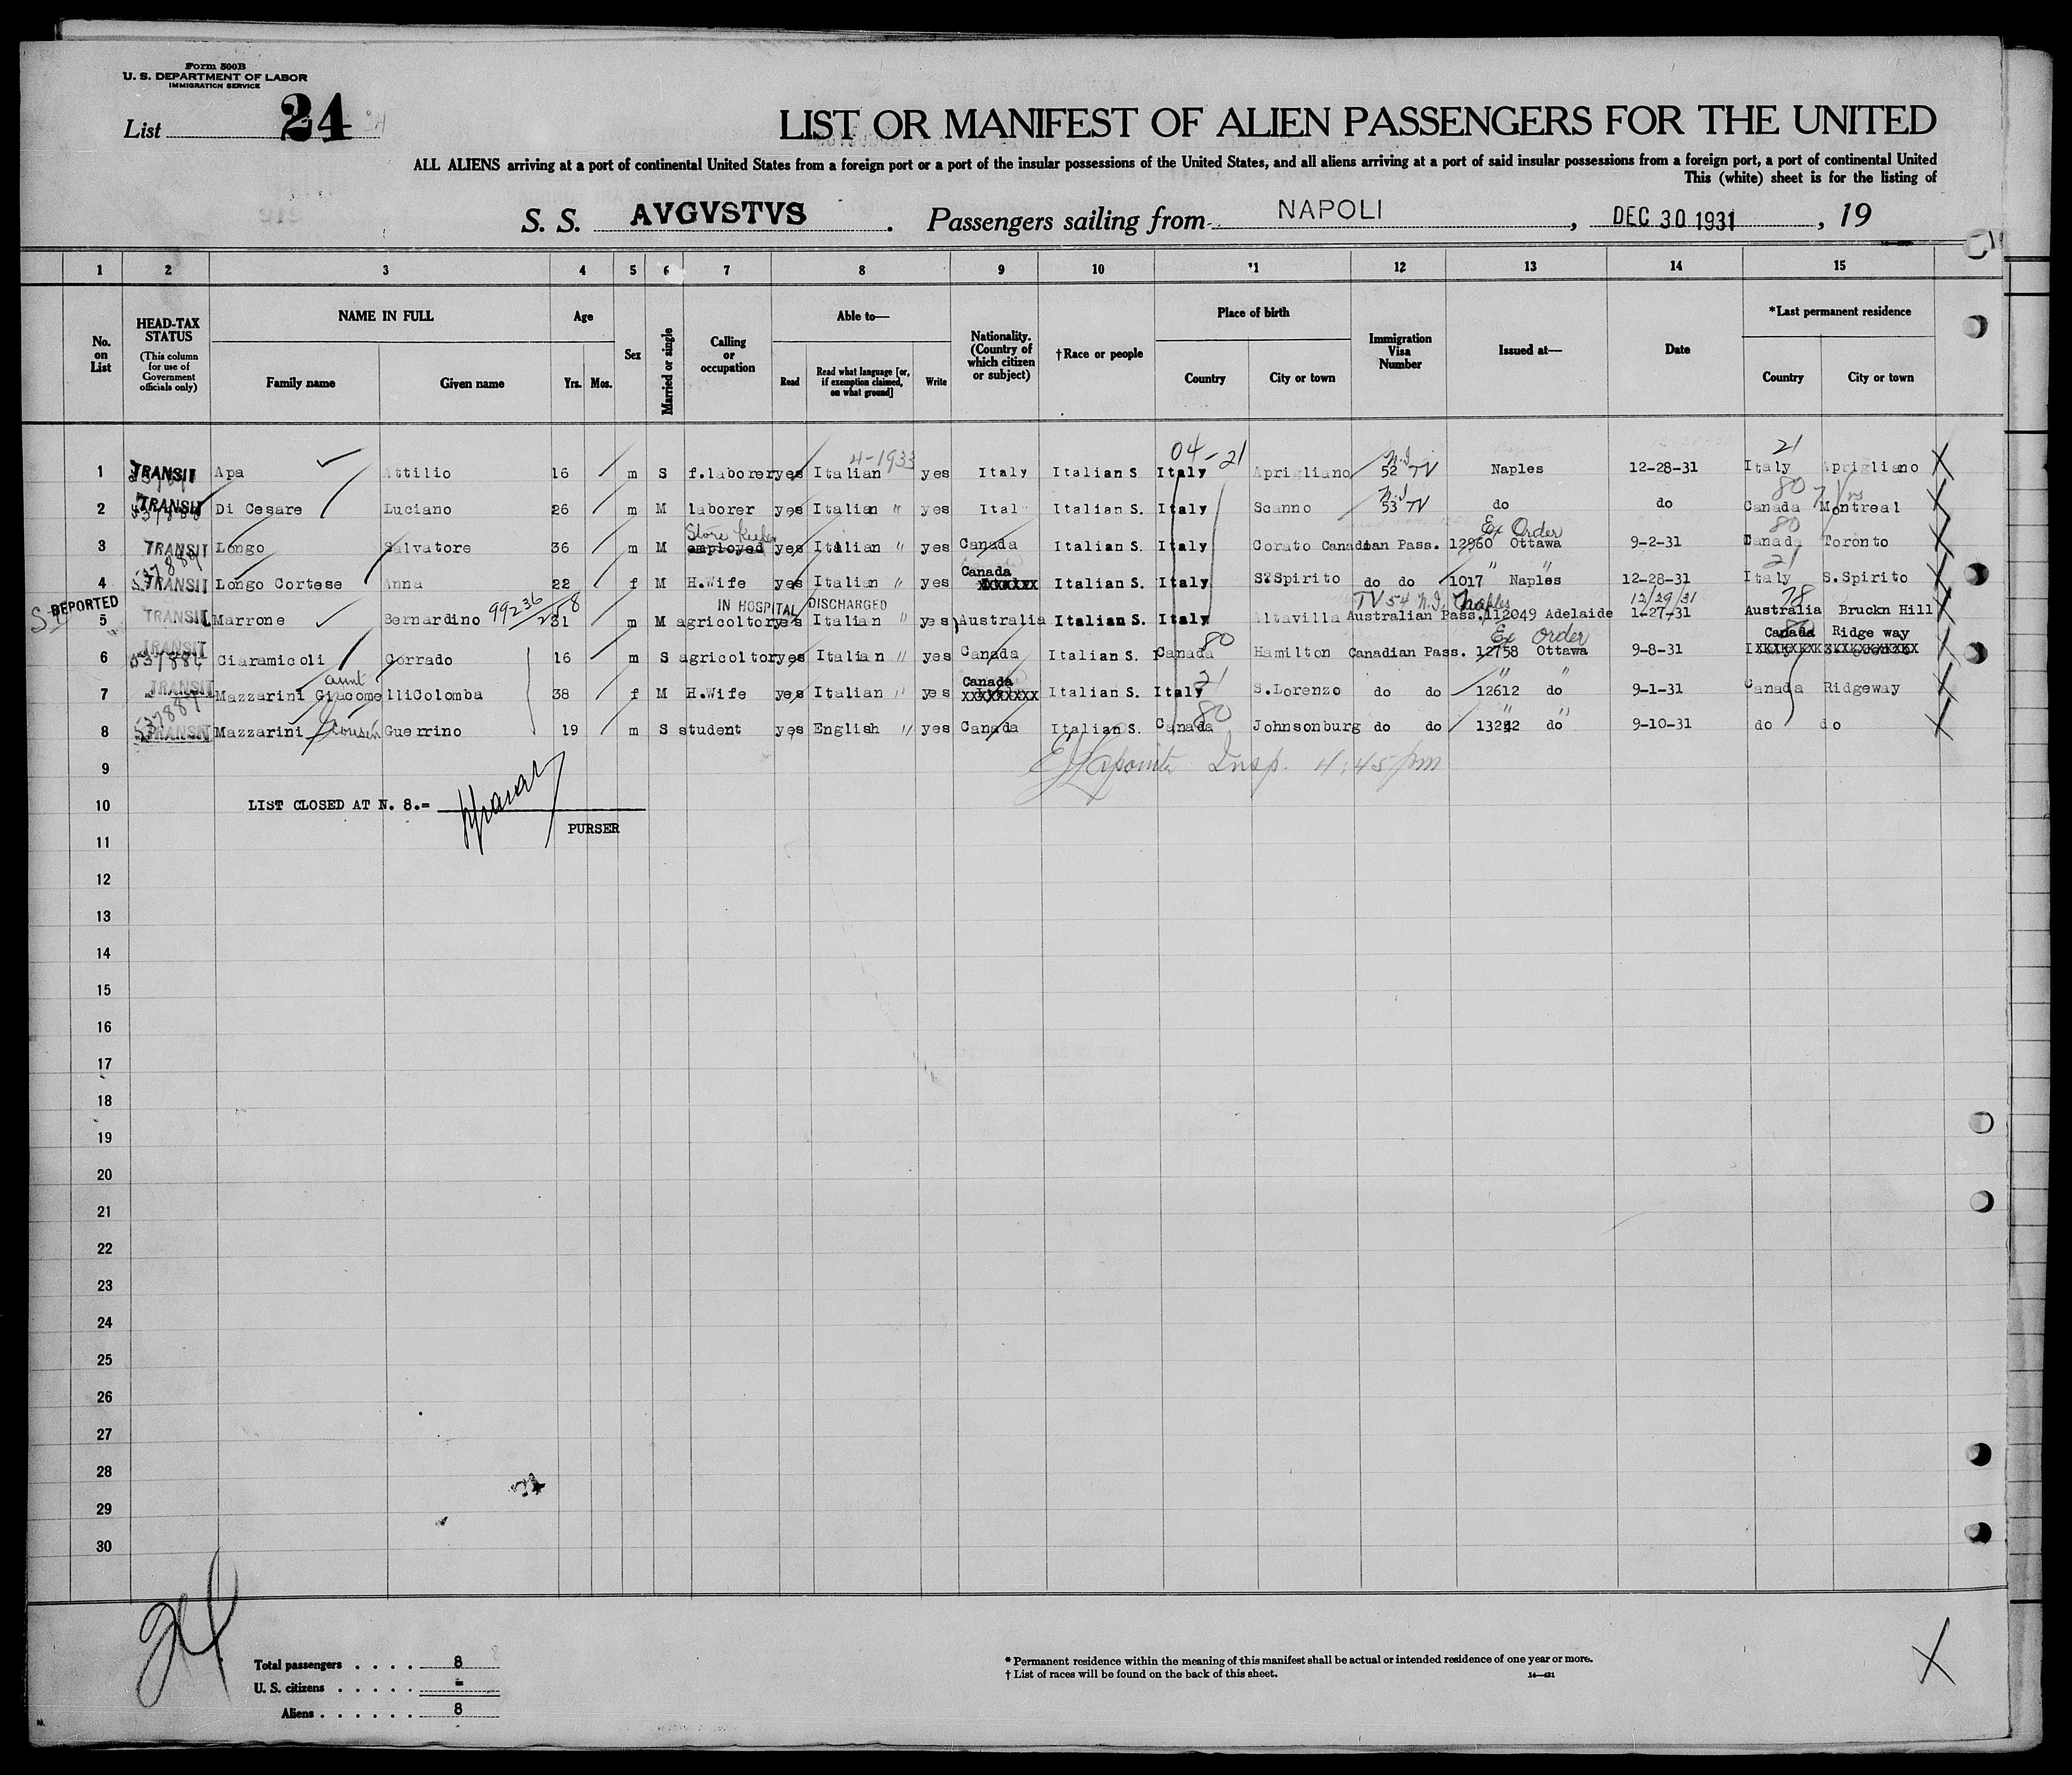 Form 500B
U. S. DEPARTMENT OF LABOR
IMMIGRATION SERVICE
List 24
LIST OR MANIFEST OF ALIEN PASSENGERS FOR THE UNITED
ALL ALIENS arriving at a port of continental United States from a foreign port or a port of the insular possessions of the United States, and all aliens arriving at a port of said insular possessions from a foreign port, a port of continental United
This (white) sheet is for the listing of
S. S. AVGVSTVS. Passengers sailing from NAPOLI, DEC 30 1931, 19
1 2 3 4 5 6 7 8 9 10 11 12 13 14 15
No. on List
HEAD-TAX STATUS (This column for use of Government officials only)
NAME IN FULL
Family name Given name
Age
Yrs. Mos.
Sex
Married or single
Calling or occupation
Able to—
Read
Read what language [or, if exemption claimed, on what ground]
Write
Nationality. (Country of which citizen or subject)
†Race or people
Place of birth
Country City or town
Immigration Visa Number
Issued at—
Date
*Last permanent residence
Country City or town
4-1933 04-21 N.I. 21
1 TRANSIT Apa Attilio 16 m S f.laborer yes Italian yes Italy Italian S Italy Aprigliano 52 TV Naples 12-28-31 Italy Aprigliano X
N.I. 80
2 TRANSIT Di Cesare Luciano 26 m M laborer yes Italian " yes Ital Italian S. Italy Scanno 53 TV do do Canada Montreal X
Store Keeper Ex Order 80
3 TRANSIT Longo Salvatore 36 m M employed yes Italian " yes Canada Italian S. Italy Corato Canadian Pass. 12960 Ottawa 9-2-31 Canada Toronto X
Canada " " 21
4 TRANSIT Longo Cortese Anna 22 f M H.Wife yes Italian " yes XXXXXXX Italian S. Italy S.Spirito do do 1017 Naples 12-28-31 Italy S.Spirito X
DEPORTED 99236/258 IN HOSPITAL DISCHARGED TV 54 N.I. Naples 12/29/31 78
5 TRANSIT Marrone Bernardino 31 m M agricoltor yes Italian " yes Australia Italian S. Italy Altavilla Australian Pass. 112049 Adelaide 1-27-31 Australia Bruckn Hill
80 Ex Order Canada Ridge way
6 TRANSIT 537886 Ciaramicoli Corrado 16 m S agricoltor yes Italian " yes Canada Italian S. Canada Hamilton Canadian Pass. 12758 Ottawa 9-8-31 X
aunt Canada 21 " "
7 TRANSIT Mazzarini Giacomelli Colomba 38 f M H.Wife yes Italian " yes XXXXXXXX Italian S. Italy S.Lorenzo do do 12612 do 9-1-31 Canada Ridgeway X
cousin 80 " "
8 TRANSIT Mazzarini Guerrino 19 m S student yes English " yes Canada Italian S. Canada Johnsonburg do do 13242 do 9-10-31 do do X
9 Insp. 4:45 pm
10 LIST CLOSED AT N. 8.=
PURSER
11
12
13
14
15
16
17
18
19
20
21
22
23
24
25
26
27
28
29
30
24
Total passengers . . . . 8
U. S. citizens . . . . . =
Aliens . . . . . . 8
* Permanent residence within the meaning of this manifest shall be actual or intended residence of one year or more.
† List of races will be found on the back of this sheet. 14—431
X